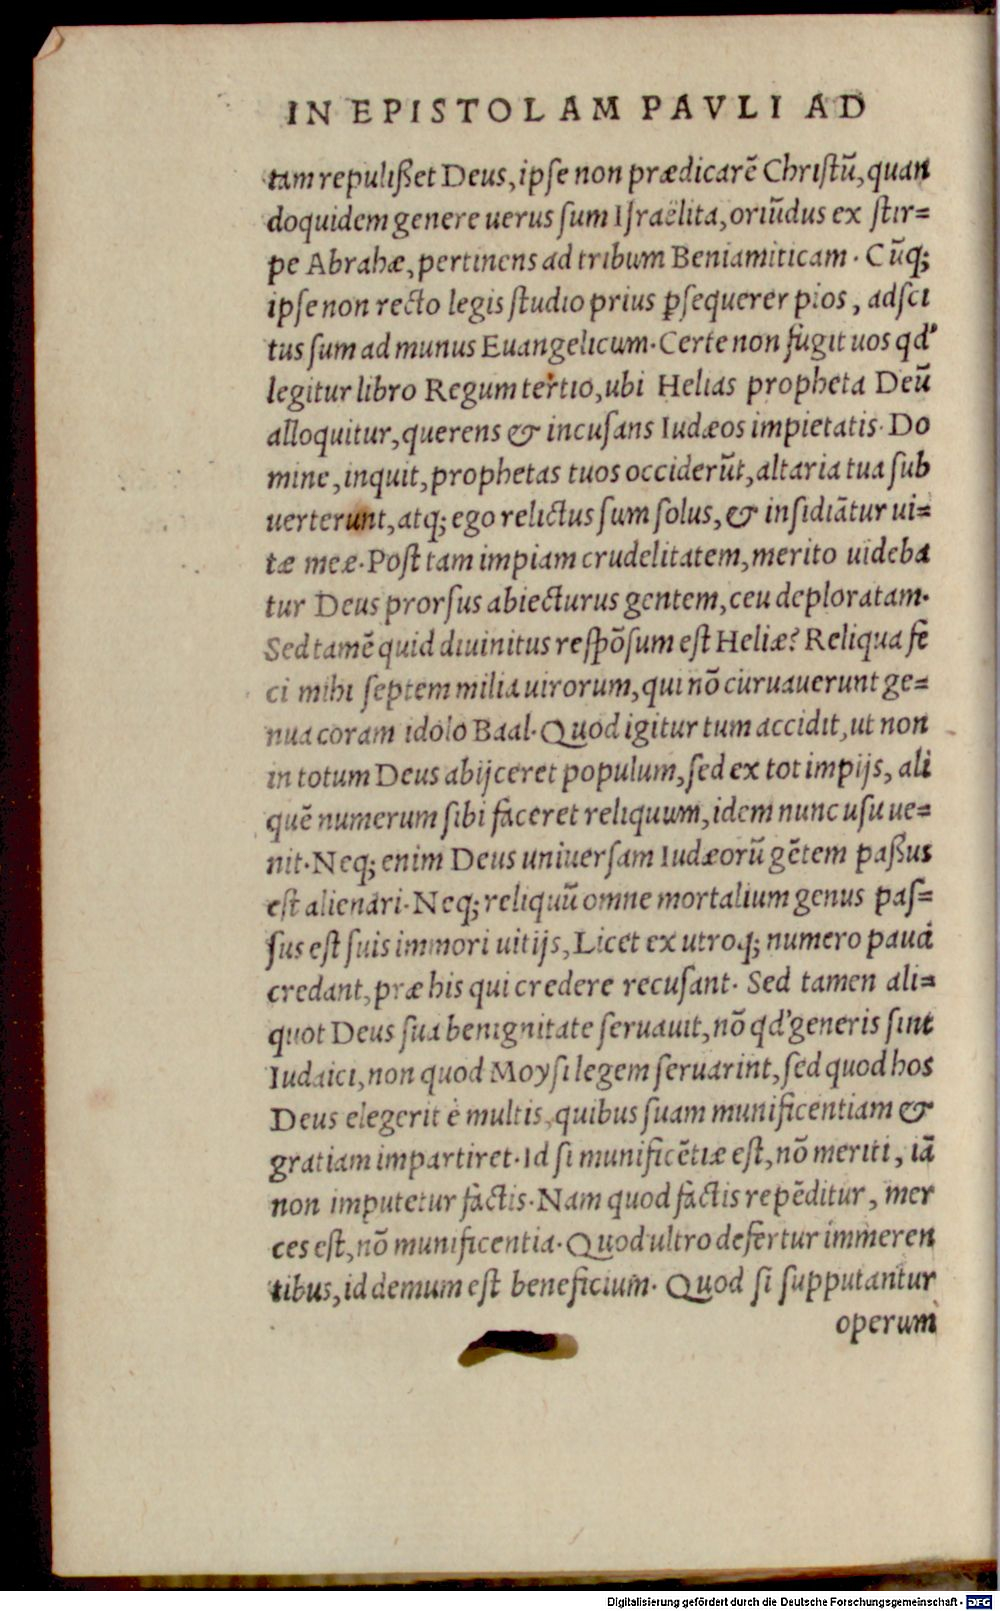 IN EPISTOLAM PAVLI AD
tam repulißet Deus, ipse non prædicarẽ Christũ, quan
doquidem genere uerus sum Israëlita, oriũdus ex stir=
pe Abrahæ, pertinens ad tribum Beniamiticam. Cũq;
ipse non recto legis studio prius ꝑsequerer pios, adsci
tus sum ad munus Euangelicum. Certe non fugit uos qd'
legitur libro Regum tertio, ubi Helias propheta Deũ
alloquitur, querens & incusans Iudæos impietatis. Do
mine, inquit, prophetas tuos occiderũt, altaria tua sub
uerterunt, atq; ego relictus sum solus, & insidiãtur ui=
tæ meæ. Post tam impiam crudelitatem, merito uideba
tur Deus prorsus abiecturus gentem, ceu deploratam.
Sed tamẽ quid diuinitus respõsum est Heliæ? Reliqua fe
ci mihi septem milia uirorum, qui nõ curuauerunt ge=
nua coram idolo Baal. Quod igitur tum accidit, ut non
in totum Deus abijceret populum, sed ex tot impijs, ali
quẽ numerum sibi faceret reliquum, idem nunc usu ue=
nit. Neq; enim Deus uniuersam Iudæorũ gẽtem paßus
est alienari. Neq; reliquũ omne mortalium genus pas=
sus est suis immori uitijs, Licet ex utroq; numero pauci
credant, præ his qui credere recusant. Sed tamen ali=
quot Deus sua benignitate seruauit, nõ qd' generis sint
Iudaici, non quod Moysi legem seruarint, sed quod hos
Deus elegerit è multis, quibus suam munificentiam &
gratiam impartiret. Id si munificẽtiæ est, nõ meriti, iã
non imputetur factis. Nam quod factis repẽditur, mer
ces est, nõ munificentia. Quod ultro defertur immeren
tibus, id demum est beneficium. Quod si supputantur
operum
Digitalisierung gefördert durch die Deutsche Forschungsgemeinschaft - DFG